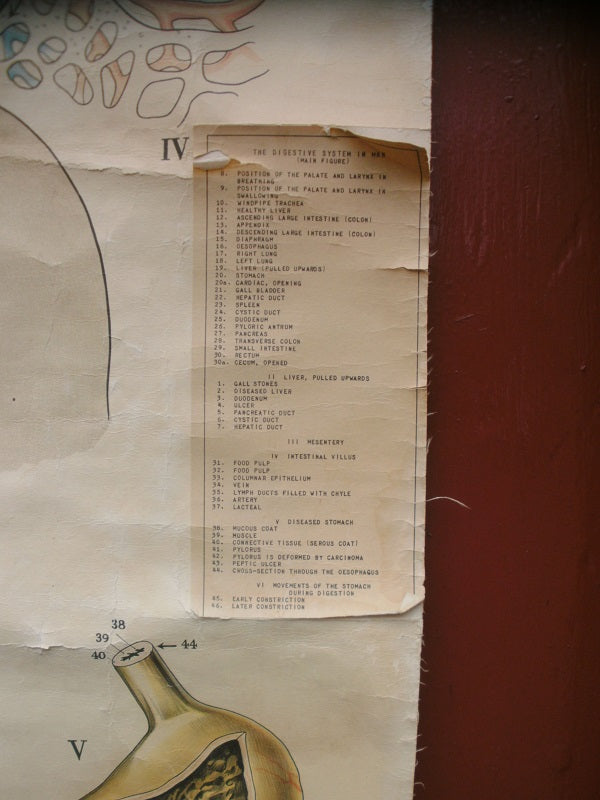 IV
THE DIGESTIVE SYSTEM IN MEN
(MAIN FIGURE)
8. POSITION OF THE PALATE AND LARYNX IN
BREATHING
9. POSITION OF THE PALATE AND LARYNX IN
SWALLOWING
10. WINDPIPE TRACHEA
11. HEALTHY LIVER
12. ASCENDING LARGE INTESTINE (COLON)
13. APPENDIX
14. DESCENDING LARGE INTESTINE (COLON)
15. DIAPHRAGM
16. OESOPHAGUS
17. RIGHT LUNG
18. LEFT LUNG
19. LIVER (PULLED UPWARDS)
20. STOMACH
20a. CARDIAC, OPENING
21. GALL BLADDER
22. HEPATIC DUCT
23. SPLEEN
24. CYSTIC DUCT
25. DUODENUM
26. PYLORIC ANTRUM
27. PANCREAS
28. TRANSVERSE COLON
29. SMALL INTESTINE
30. RECTUM
30a. CECUM, OPENED
II LIVER, PULLED UPWARDS
1. GALL STONES
2. DISEASED LIVER
3. DUODENUM
4. ULCER
5. PANCREATIC DUCT
6. CYSTIC DUCT
7. HEPATIC DUCT
III MESENTERY
IV INTESTINAL VILLUS
31. FOOD PULP
32. FOOD PULP
33. COLUMNAR EPITHELIUM
34. VEIN
35. LYMPH DUCTS FILLED WITH CHYLE
36. ARTERY
37. LACTEAL
V DISEASED STOMACH
38. MUCOUS COAT
39. MUSCLE
40. CONNECTIVE TISSUE (SEROUS COAT)
41. PYLORUS
42. PYLORUS IS DEFORMED BY CARCINOMA
43. PEPTIC ULCER
44. CROSS-SECTION THROUGH THE OESOPHAGUS
VI MOVEMENTS OF THE STOMACH
DURING DIGESTION
45. EARLY CONSTRICTION
46. LATER CONSTRICTION
38
39
40
44
V